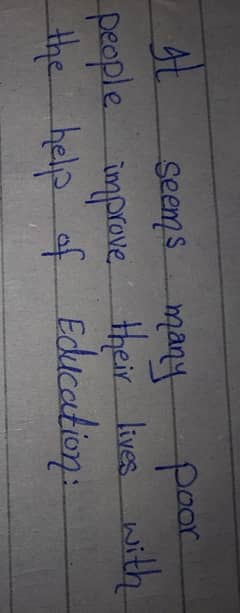 It seems many poor
people improve their lives with
the help of Education: